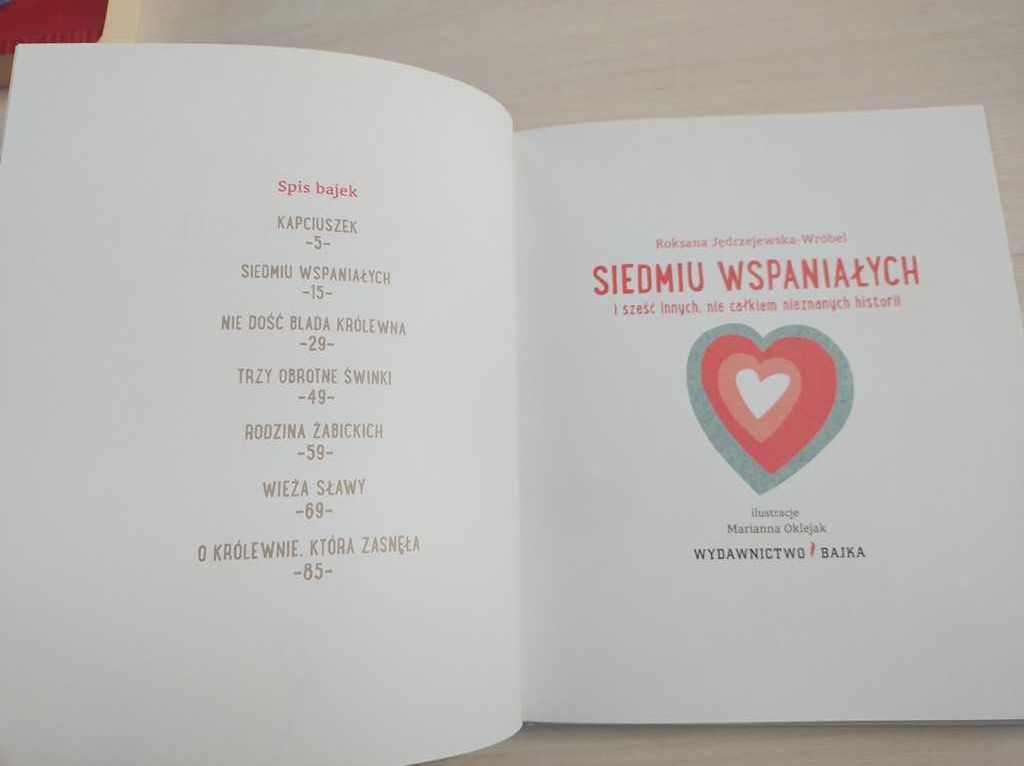 Spis bajek
KAPCIUSZEK
-5-
SIEDMIU WSPANIAŁYCH
-15-
NIE DOŚĆ BLADA KRÓLEWNA
-29-
TRZY OBROTNE ŚWINKI
-49-
RODZINA ŻABICKICH
-59-
WIEŻA SŁAWY
-69-
O KRÓLEWNIE, KTÓRA ZASNĘŁA
-85-
Roksana Jędrzejewska-Wróbel
SIEDMIU WSPANIAŁYCH
i sześć innych, nie całkiem nieznanych historii
ilustracje
Marianna Oklejak
WYDAWNICTWO BAJKA